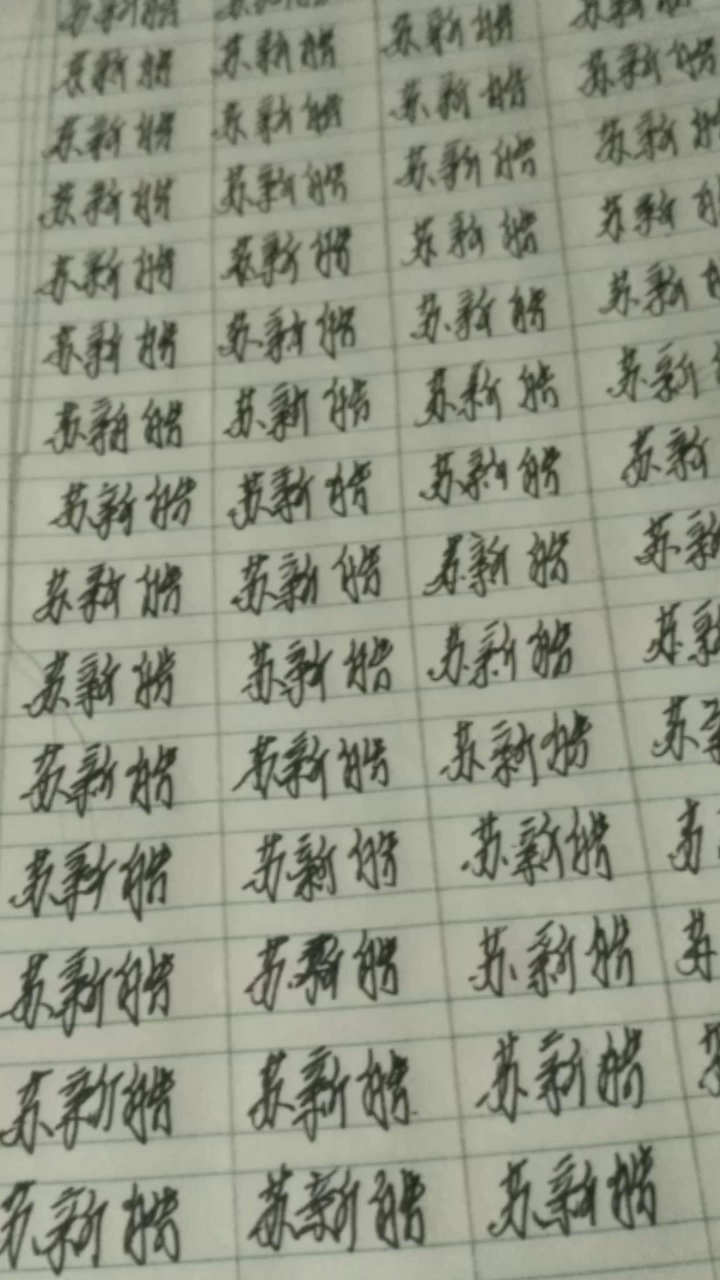 苏新皓 苏新皓
苏新皓 苏新皓 苏新皓 苏新皓
苏新皓 苏新皓 苏新皓 苏新皓
苏新皓 苏新皓 苏新皓 苏新皓
苏新皓 苏新皓 苏新皓 苏新
苏新皓 苏新皓 苏新皓 苏新
苏新皓 苏新皓 苏新皓 苏新
苏新皓 苏新皓 苏新皓 苏新
苏新皓 苏新皓 苏新皓 苏新
苏新皓 苏新皓 苏新皓 苏新
苏新皓 苏新皓 苏新皓 苏
苏新皓 苏新皓 苏新皓 苏
苏新皓 苏新皓 苏新皓 苏
苏新皓 苏新皓 苏新皓
苏新皓 苏新皓 苏新皓